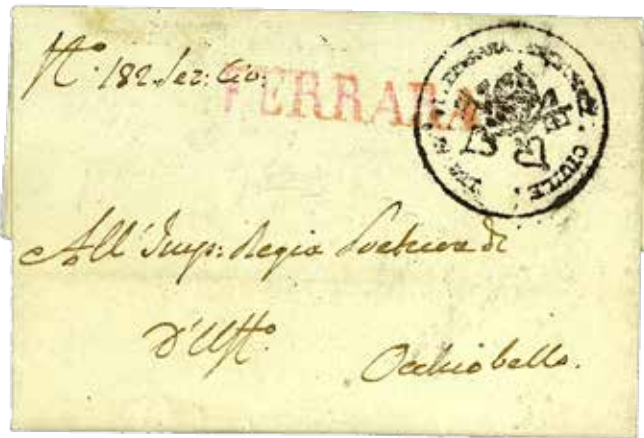 N.º 182 Sez: Civ:
FERRARA
CIVILE
All' Imp: Regia Pretura di
d'Uff.º
Occhiobello.